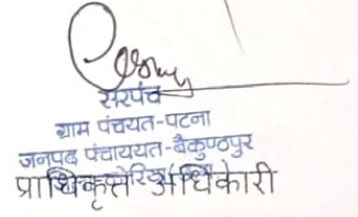 सरपंच
ग्राम पंचयत-पटना
जनपद पंचाययत-बैकुण्ठपुर
प्राधिकृत अधिकारी